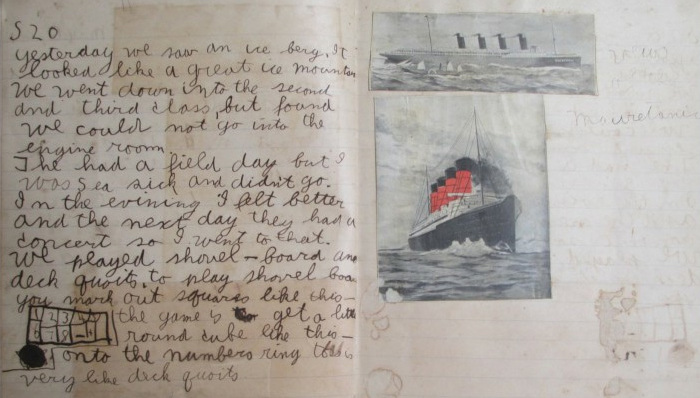 S 20
yesterday we saw an ice berg. It
looked like a great ice mountain
We went down into the second
and third class, but found
we could not go into the
engine room
The had a field day but I
was Sea sick and didn't go.
In the evining I felt better
and the next day they had a
concert so I went to that.
We played shovel-board and
deck quoits. to play shovel boa
you mark out squares like this-
1 2 3 the game is to get a litt
6 7 8 round cube like this-
onto the numbers ring this is
very like deck quoits
Mauretania